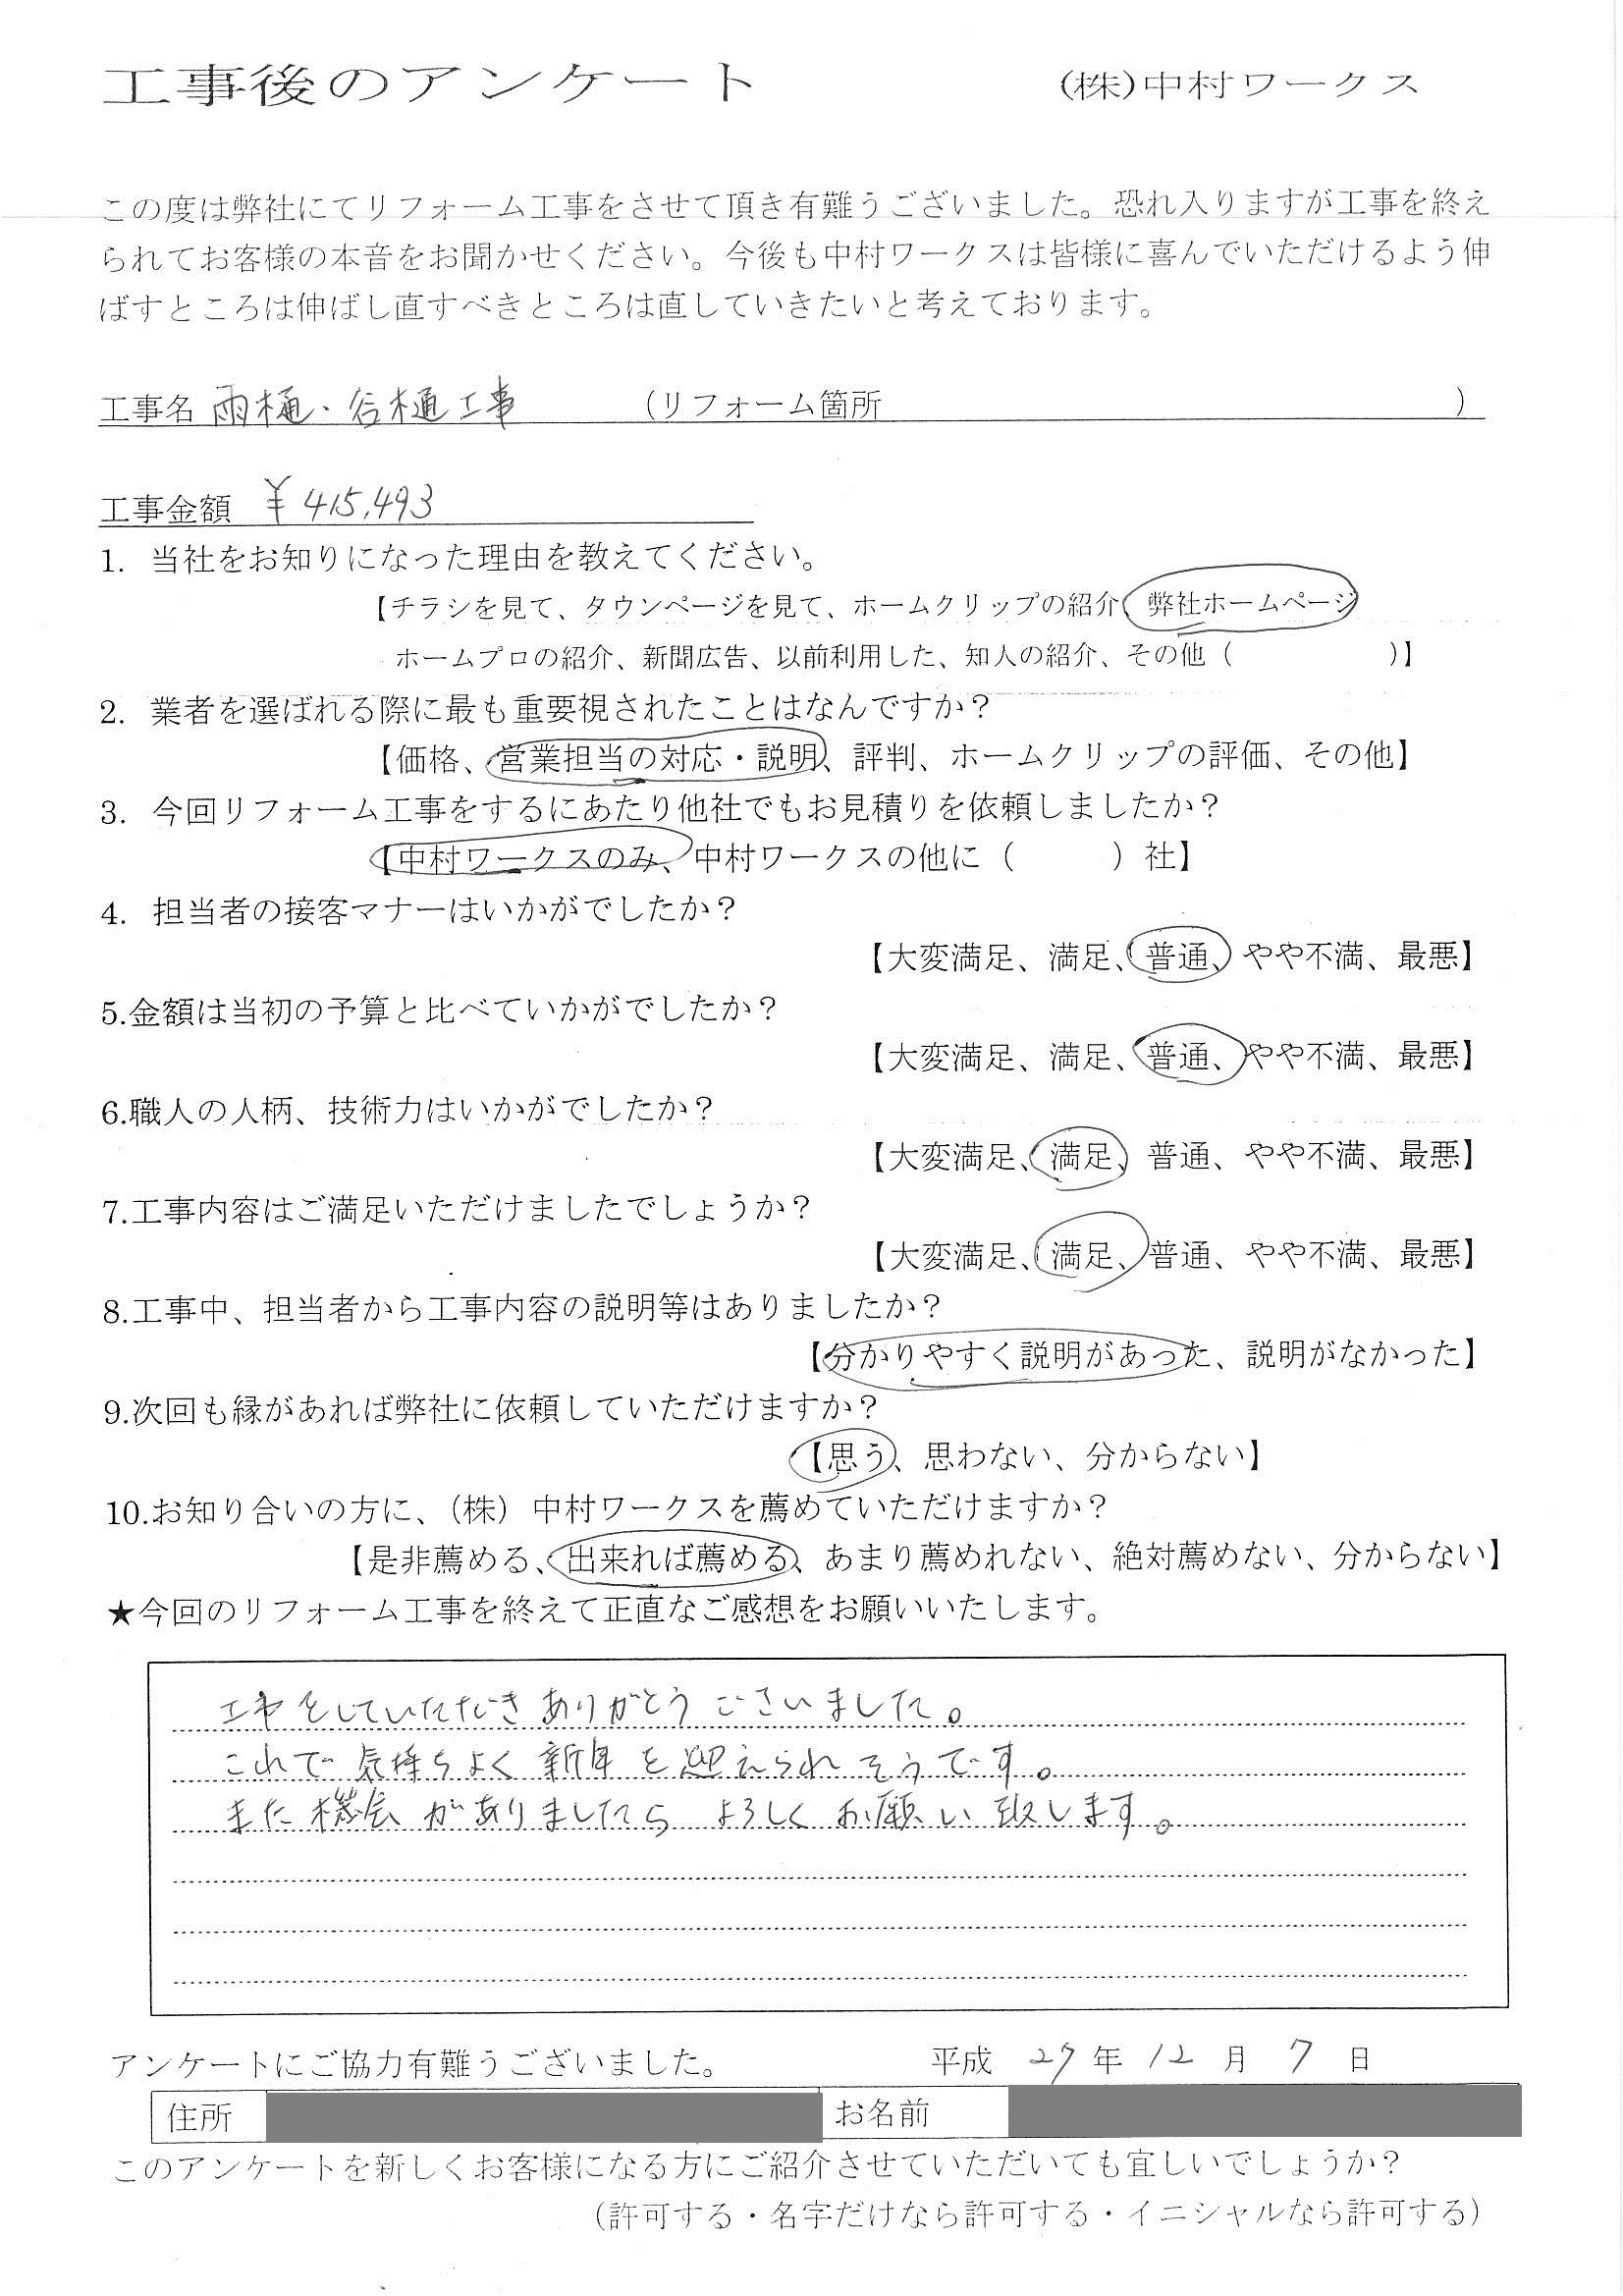 工事後のアンケート　(株)中村ワークス
この度は弊社にてリフォーム工事をさせて頂き有難うございました。恐れ入りますが工事を終え
られてお客様の本音をお聞かせください。今後も中村ワークスは皆様に喜んでいただけるよう伸
ばすところは伸ばし直すべきところは直していきたいと考えております。
工事名 雨樋・谷樋工事 （リフォーム箇所　　　）
工事金額 ¥415,493
1. 当社をお知りになった理由を教えてください。
【チラシを見て、タウンページを見て、ホームクリップの紹介、弊社ホームページ
ホームプロの紹介、新聞広告、以前利用した、知人の紹介、その他（　　　）】
2. 業者を選ばれる際に最も重要視されたことはなんですか？
【価格、営業担当の対応・説明、評判、ホームクリップの評価、その他】
3. 今回リフォーム工事をするにあたり他社でもお見積りを依頼しましたか？
【中村ワークスのみ、中村ワークスの他に（　　　）社】
4. 担当者の接客マナーはいかがでしたか？
【大変満足、満足、普通、やや不満、最悪】
5.金額は当初の予算と比べていかがでしたか？
【大変満足、満足、普通、やや不満、最悪】
6.職人の人柄、技術力はいかがでしたか？
【大変満足、満足、普通、やや不満、最悪】
7.工事内容はご満足いただけましたでしょうか？
【大変満足、満足、普通、やや不満、最悪】
8.工事中、担当者から工事内容の説明等はありましたか？
【分かりやすく説明があった、説明がなかった】
9.次回も縁があれば弊社に依頼していただけますか？
【思う、思わない、分からない】
10.お知り合いの方に、（株）中村ワークスを薦めていただけますか？
【是非薦める、出来れば薦める、あまり薦めれない、絶対薦めない、分からない】
★今回のリフォーム工事を終えて正直なご感想をお願いいたします。
工事をしていただきありがとうございました。
これで気持ちよく新年を迎えられそうです。
また機会がありましたらよろしくお願い致します。
アンケートにご協力有難うございました。　平成 27 年 12 月 7 日
住所　お名前
このアンケートを新しくお客様になる方にご紹介させていただいても宜しいでしょうか？
（許可する・名字だけなら許可する・イニシャルなら許可する）